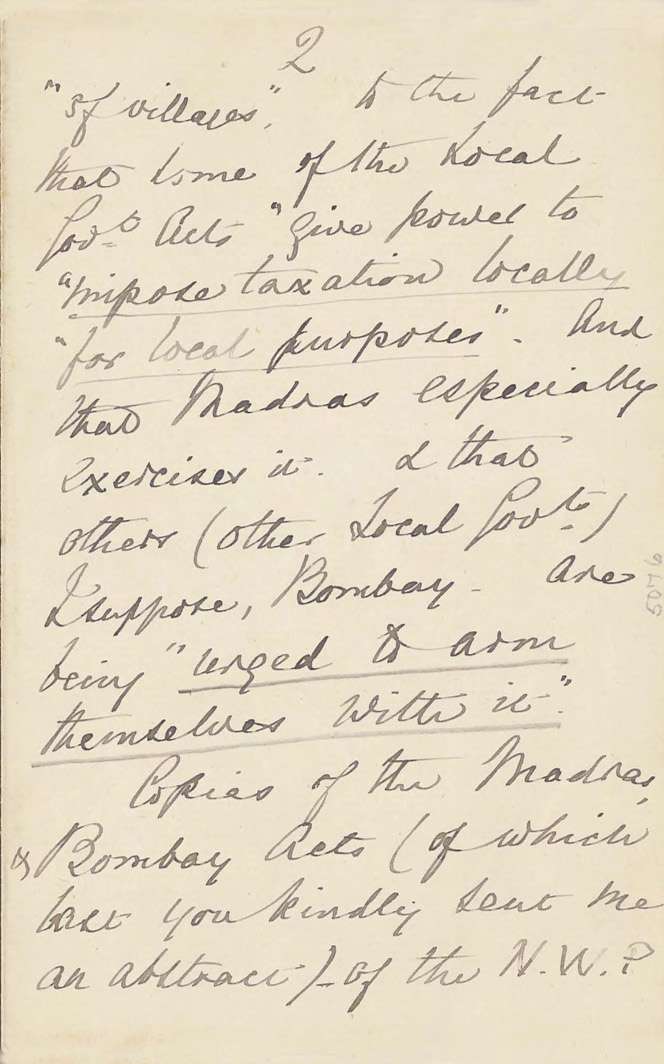 2
"of villages", to the fact
that some of the Local
Govts Acts "give power to
"impose taxation locally
"for local purposes". And
that Madras especially
exercises it. & that
others (other Local Govts)
I suppose, Bombay - are
being "urged to arm
themselves with it".
Copies of the Madras,
& Bombay Acts (of which
last you kindly sent me
an abstract) - of the N.W.P
5076